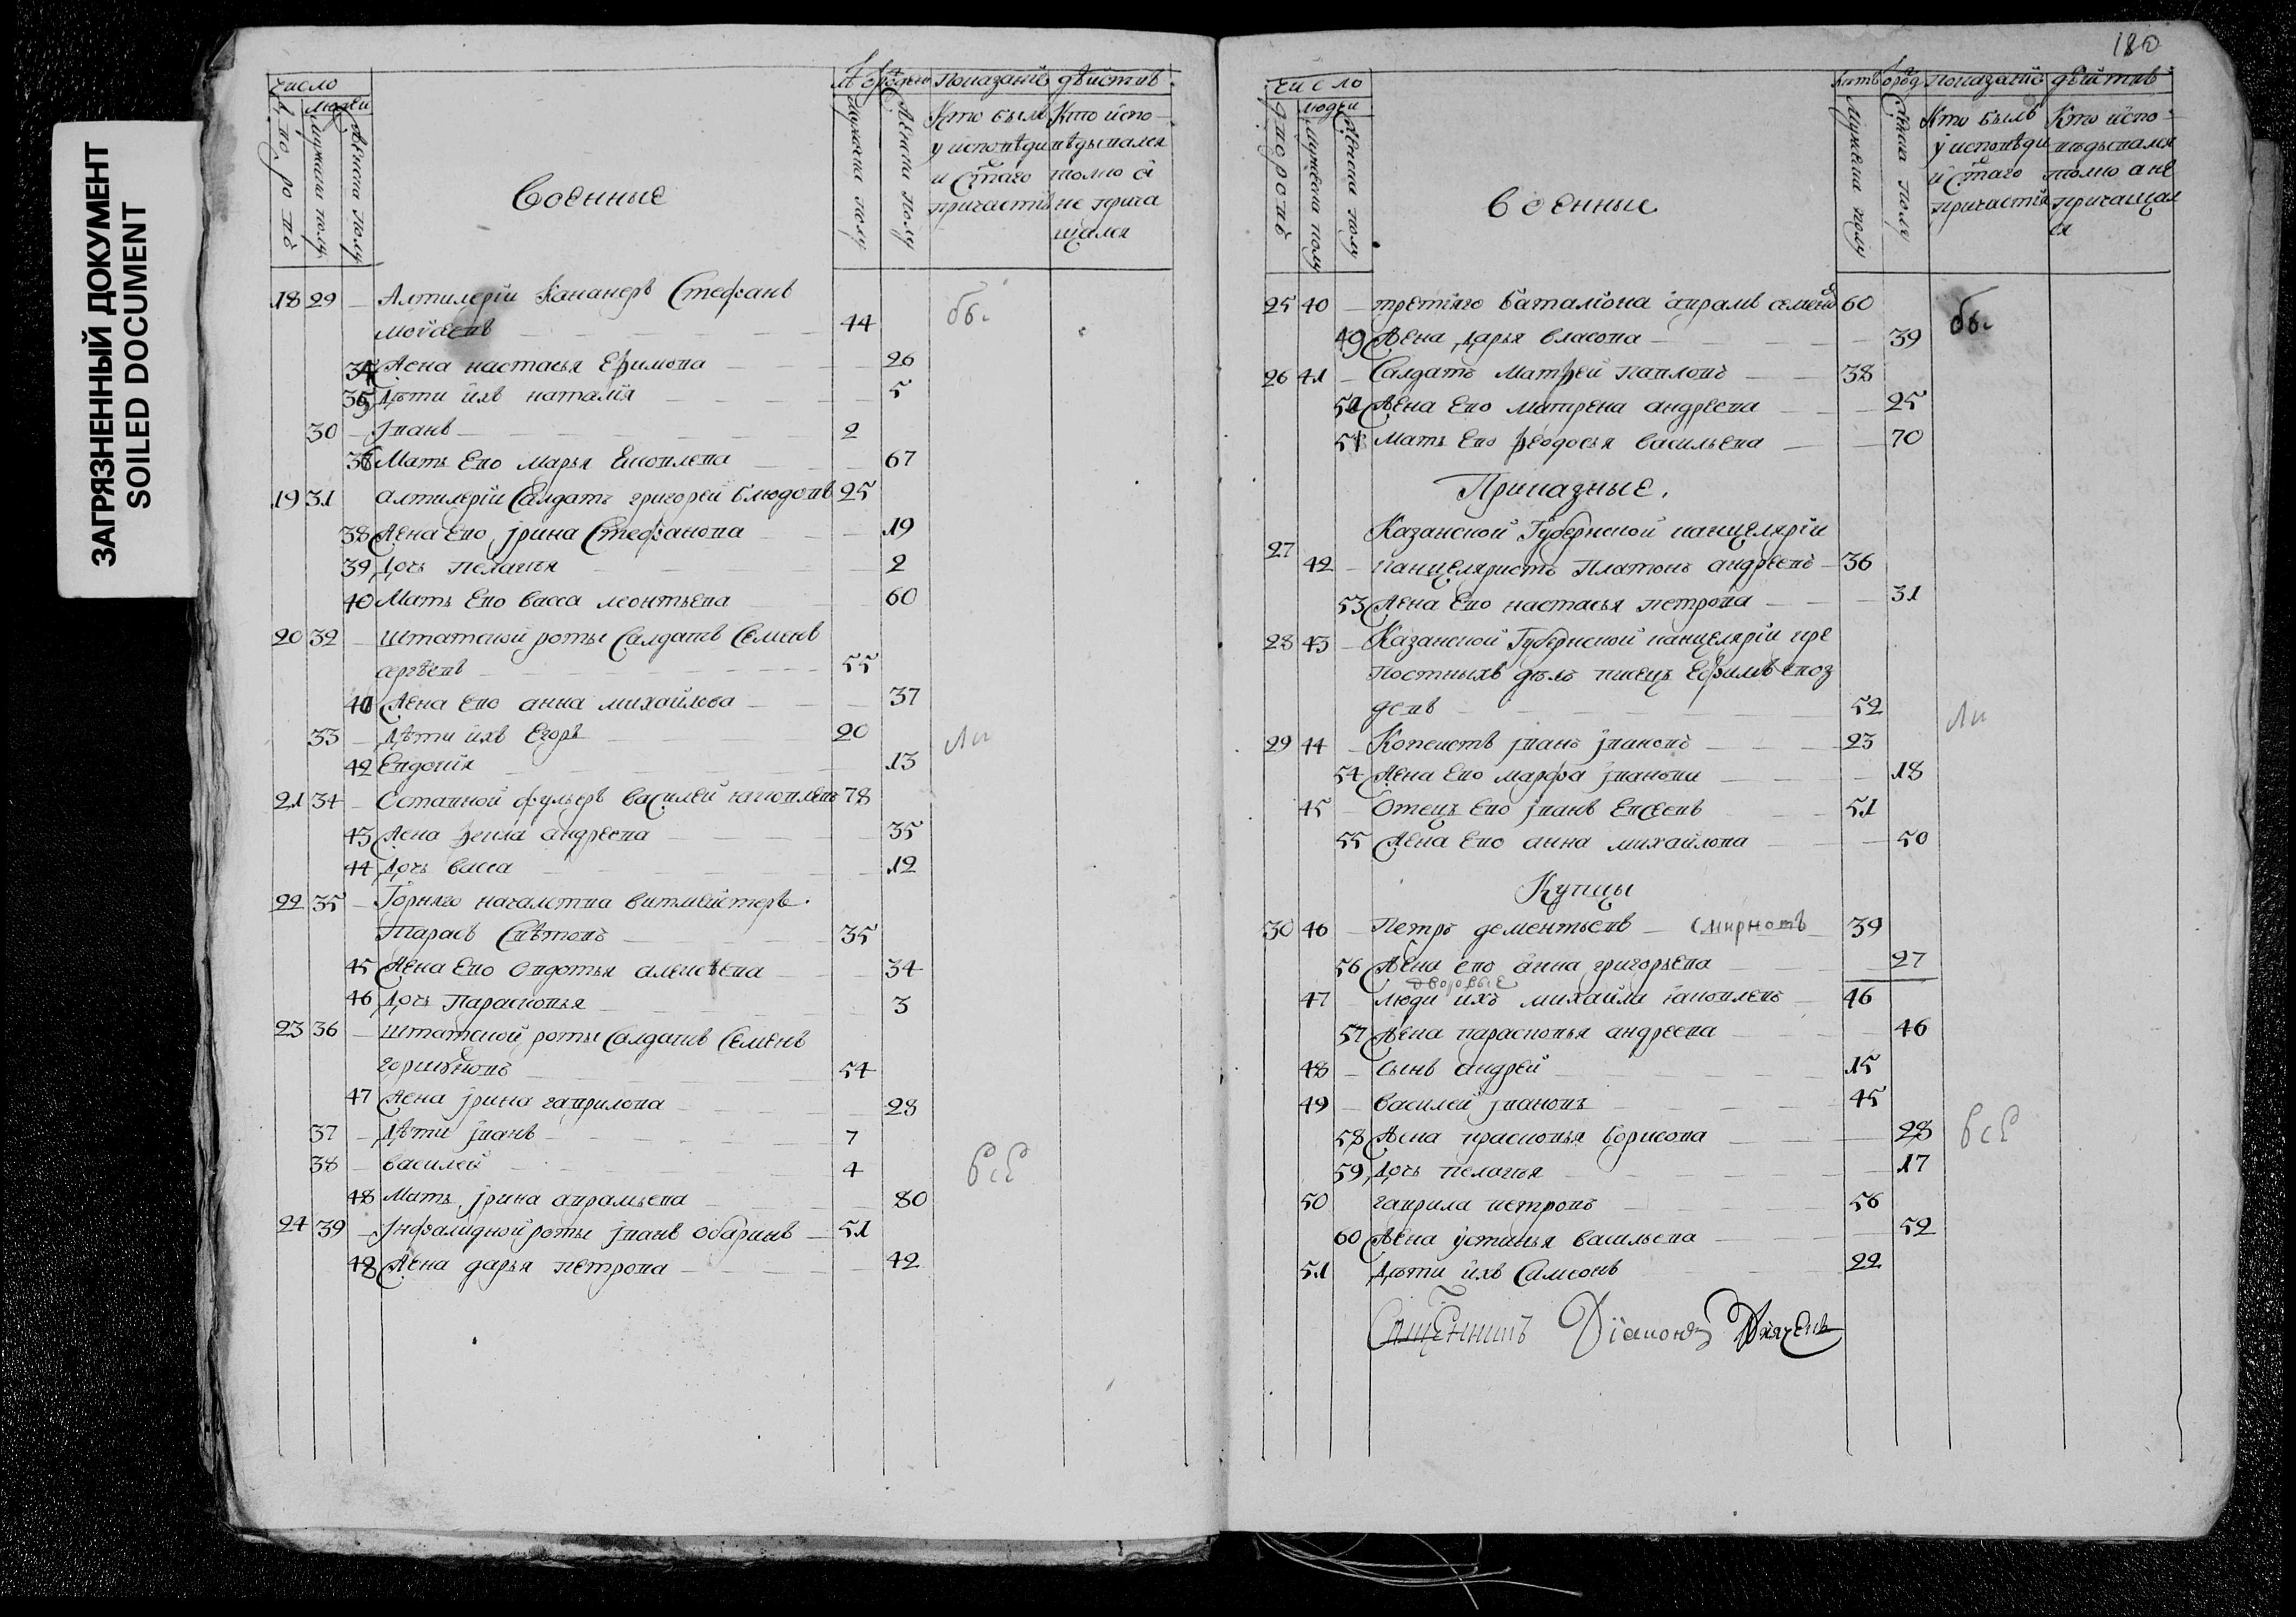 ЗАГРЯЗНЕННЫЙ ДОКУМЕНТ
SOILED DOCUMENT
число
людей
дворовъ
мужеска полу
женска полу
Военные
Лѣта от рожден
мужеска полу
женска полу
Показаніе дѣйств
Кто былъ у исповѣди и святаго причастія
Кто исповѣдывался токмо а не причащался
18 29 Алтилеріи Кананеръ Стефанъ
Мойсеевъ 44
34 Жена настасья Ефимова 26
35 Дѣти ихъ наталія 5
30 Іванъ 2
36 Мать Ево Марья Яковлева 67
19 31 алтилеріи Салдатъ григорей Блюдовъ 25
38 Жена Ево Ірина Стефанова 19
39 Дочь пелагея 2
40 Мать Ево васса леонтьева 60
20 32 Штатской роты Салдатъ Семенъ
сергѣевъ 55
41 Жена Ево анна михайлова 37
33 Дѣти ихъ Егоръ 20
42 Евдокія 13
21 34 Оставной фурьеръ Василей яковлевъ 78
43 Жена фекла андреева 35
44 Дочь васса 12
22 35 Горнаго началства витмейстеръ
Тарасъ Свѣтовъ 35
45 Жена Ево овдотья алексѣева 34
46 Дочь Парасковья 3
23 36 Штатской роты Салдатъ Семенъ
горшковъ 54
47 Жена Ірина гаврилова 28
37 Дѣти Іванъ 7
38 василей 4
48 Мать Ірина аврамьева 80
24 39 Інфалидной роты Іванъ Обаринъ 51
48 Жена дарья петрова 42
бы
ли
всЕ
180
число
людей
дворовъ
мужеска полу
женска полу
военные
Лѣта от рожд
мужеска полу
женска полу
показаніе дѣйств
Кто былъ у исповѣди и святаго причастія
Кто исповѣдывался токмо а не причащался
25 40 третіяго баталіона аврамъ семеновъ 60
49 Жена Дарья власова 39
26 41 Салдатъ Матфей павловъ 38
50 Жена Ево матрена андреева 25
51 Мать Ево феодосья васильева 70
Приказные.
Казанской Губернской канцеляріи
27 42 канцеляристъ Платонъ андреевъ 36
53 Жена Ево настасья петрова 31
28 43 Казанской Губернской канцеляріи кре
постныхъ дѣлъ писецъ Ефимъ
52
29 44 Копеистъ Іванъ Івановъ 23
54 Жена Ево марфа Іванова 18
45 Отецъ Ево Іванъ Евсеевъ 51
55 Жена Ево анна михайлова 50
Купцы
30 46 Петръ дементьевъ Смирновъ 39
56 Жена ево анна григорьева 27
дворовые
47 люди ихъ михайла яковлевъ 46
57 Жена парасковья андреева 46
48 Сынъ андрей 15
49 василей Івановъ 45
58 Жена прасковья борисова 28
59 Дочь пелагея 17
50 гаврила петровъ 56
60 Жена устинья васильева 52
51 Дѣти ихъ Самсонъ 22
бы
ли
всЕ
Священникъ